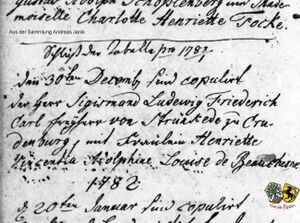 Gustav Adolph Schoptenberg und Made-
moiselle Charlotte Henriette Focke.
Aus der Sammlung Andreas Janik
Schluß der Tabelle pro 1781.
den 30ten Decemb sind copulirt
der Herr Sigismund Ludewig Friederich
Carl freyherr von Struensede zu Cru-
denburg, mit Fräulein Henriette
Adolphine Louise de Beauchesne
1782
d 20ten Januar sind copulirt